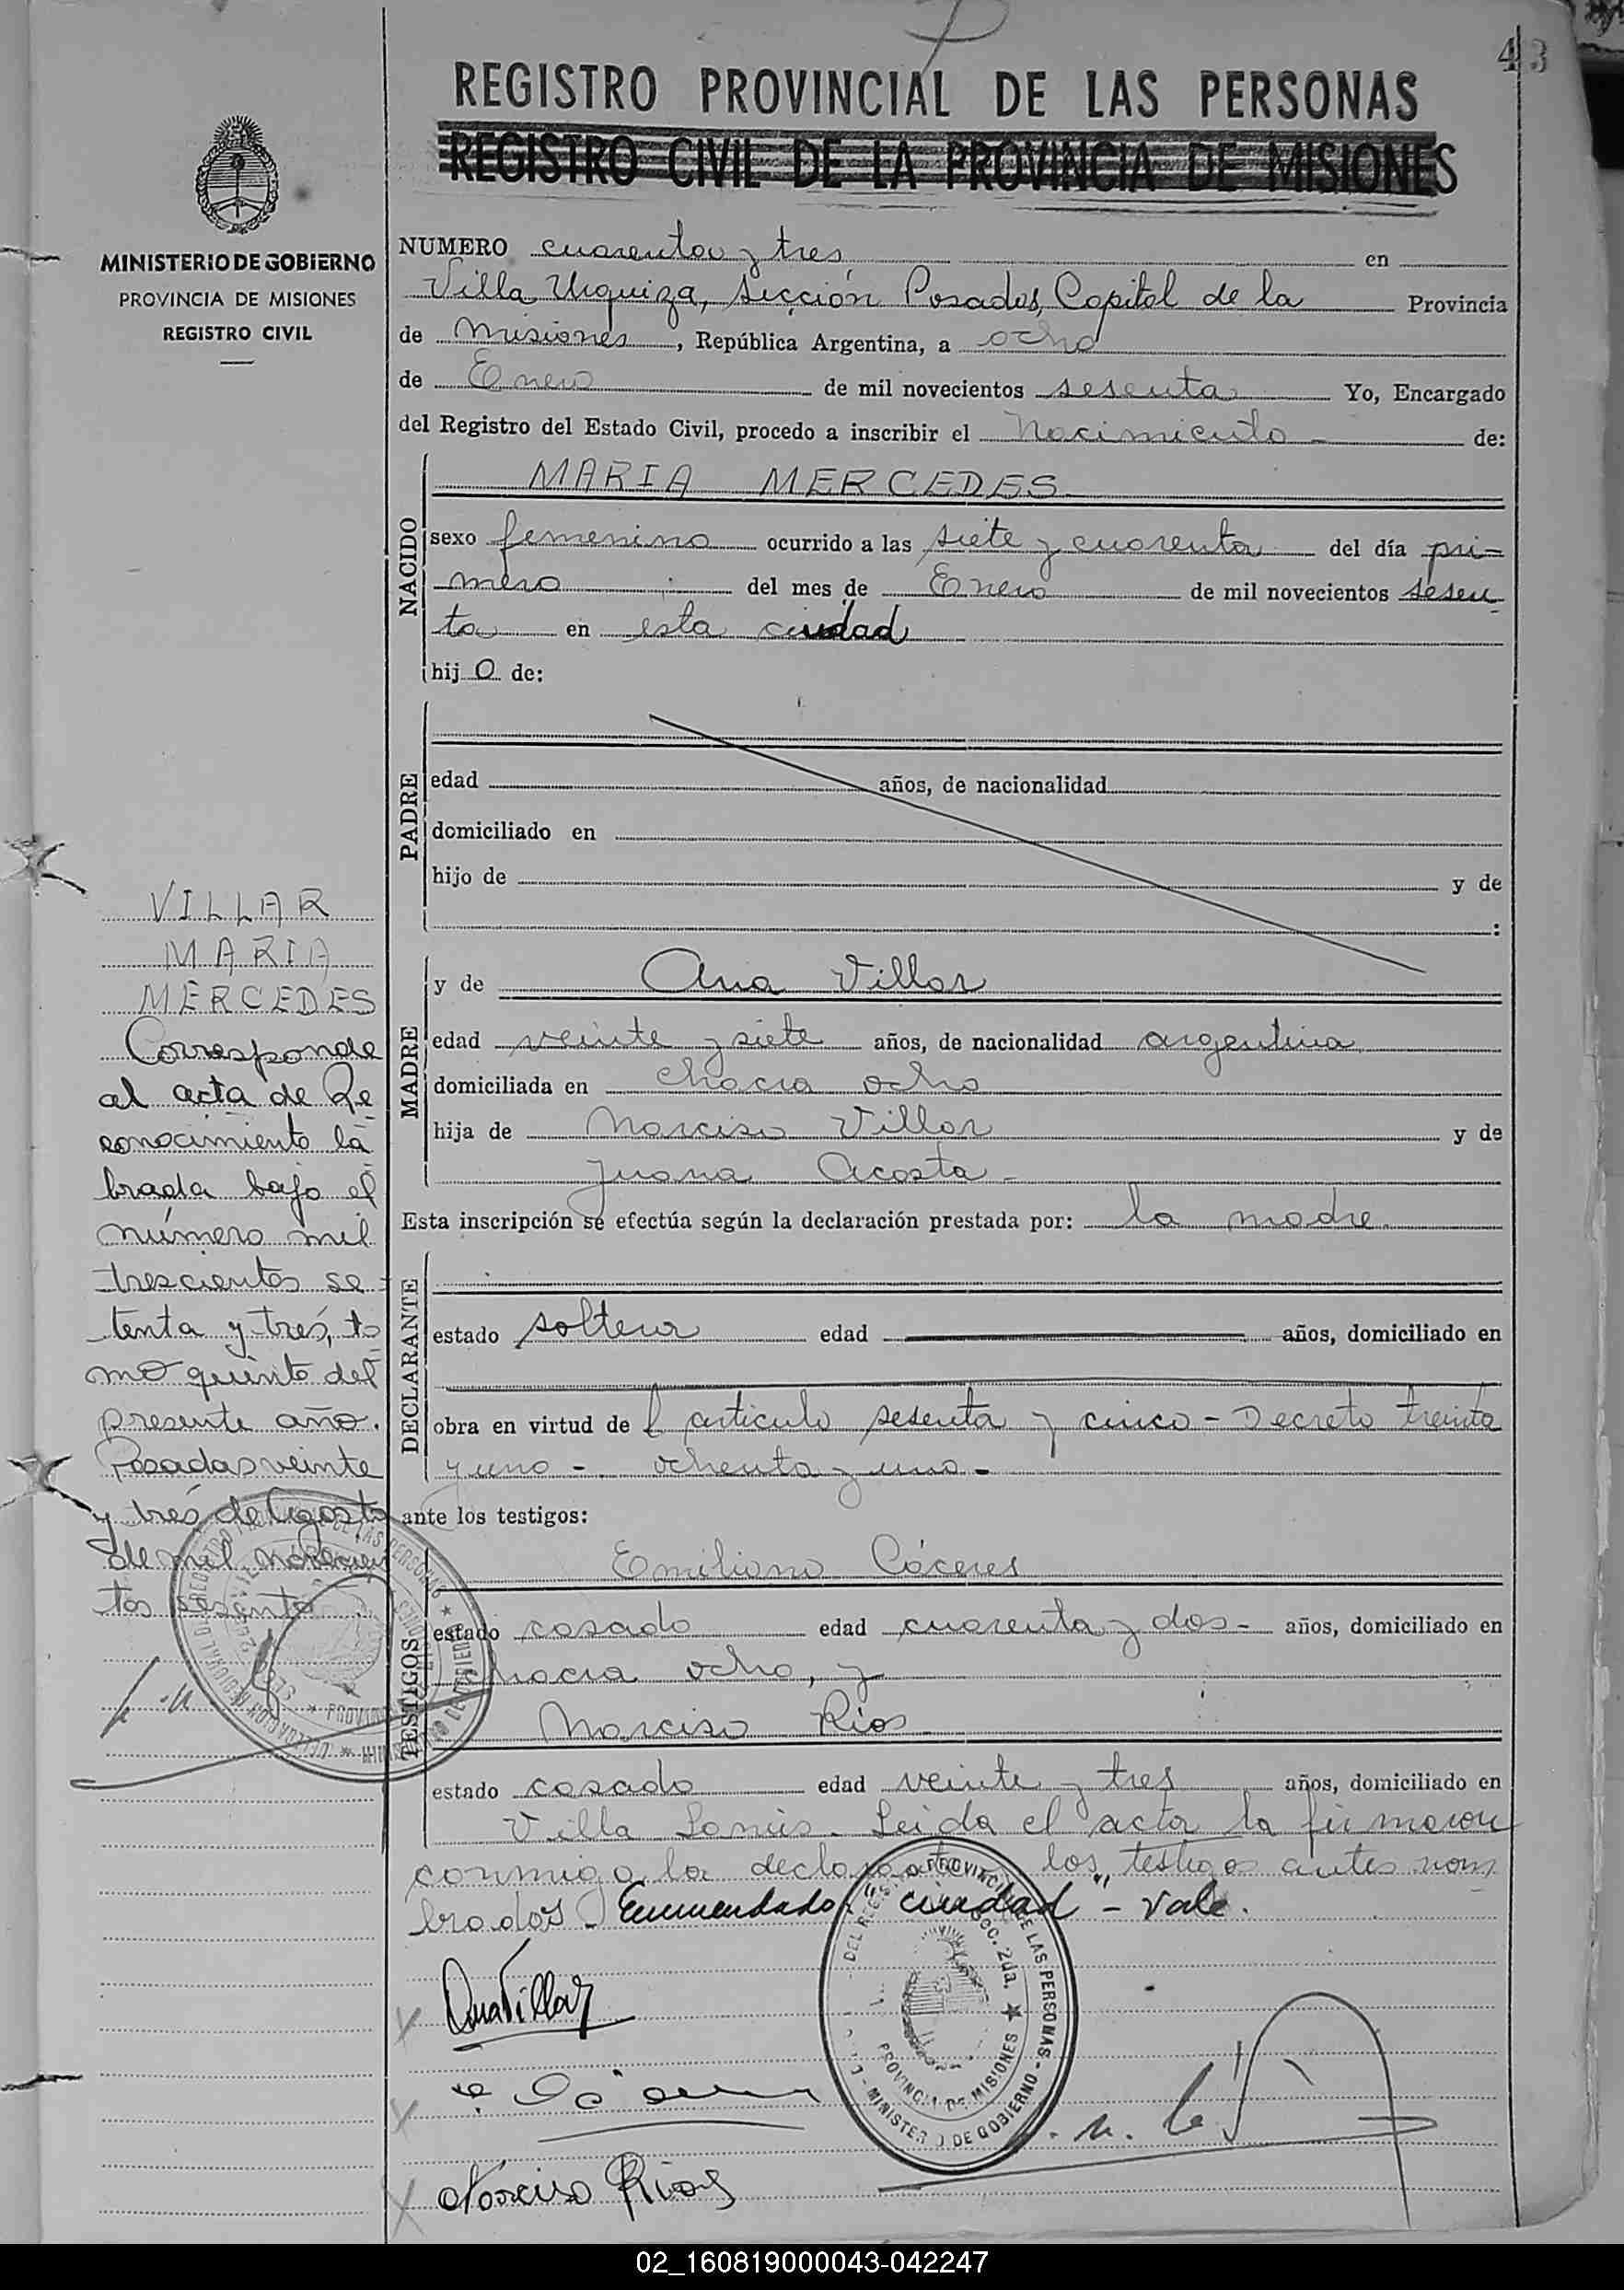 43
REGISTRO PROVINCIAL DE LAS PERSONAS
REGISTRO CIVIL DE LA PROVINCIA DE MISIONES
MINISTERIO DE GOBIERNO
PROVINCIA DE MISIONES
REGISTRO CIVIL
NUMERO cuarenta y tres en
Villa Urquiza, Sección Posadas, Capital de la Provincia
de Misiones, República Argentina, a ocho
de Enero de mil novecientos sesenta Yo, Encargado
del Registro del Estado Civil, procedo a inscribir el Nacimiento - de:
NACIDO
MARIA MERCEDES
sexo femenino ocurrido a las siete y cuarenta del día pri-
mero del mes de Enero de mil novecientos sesen
ta en esta ciudad
hij a de:
PADRE
edad años, de nacionalidad
domiciliado en
hijo de y de
:
MADRE
y de Ana Villar
edad veinte y siete años, de nacionalidad argentina
domiciliada en chacra ocho
hija de Narciso Villar y de
Juana Acosta -
Esta inscripción se efectúa según la declaración prestada por: la madre.
DECLARANTE
estado soltera edad años, domiciliado en
obra en virtud de l articulo sesenta y cinco - Decreto treinta
y uno - ochenta y uno -
ante los testigos:
TESTIGOS
Emiliano Cáceres
estado casado edad cuarenta y dos - años, domiciliado en
chacra ocho, y
Narciso Rios
estado casado edad veinte y tres años, domiciliado en
Villa Lanús. Leida el acta la firmaron
conmigo la declarante y los testigos antes nom
brados - Enmendado "ciudad" - vale.
Ana Villar
Narciso Rios
VILLAR
MARIA
MERCEDES
Corresponde
al acta de Re
conocimiento la
brada bajo el
número mil
trescientos se-
tenta y trés, to
mo quinto del
presente año.
Posadas veinte
y trés de Agosto
de mil novecien
tos sesenta
DEL REGISTRO PROVINCIAL DE LAS PERSONAS - MINISTERIO DE GOBIERNO
SECC. 2da. ★ PROVINCIA DE MISIONES
02_160819000043-042247